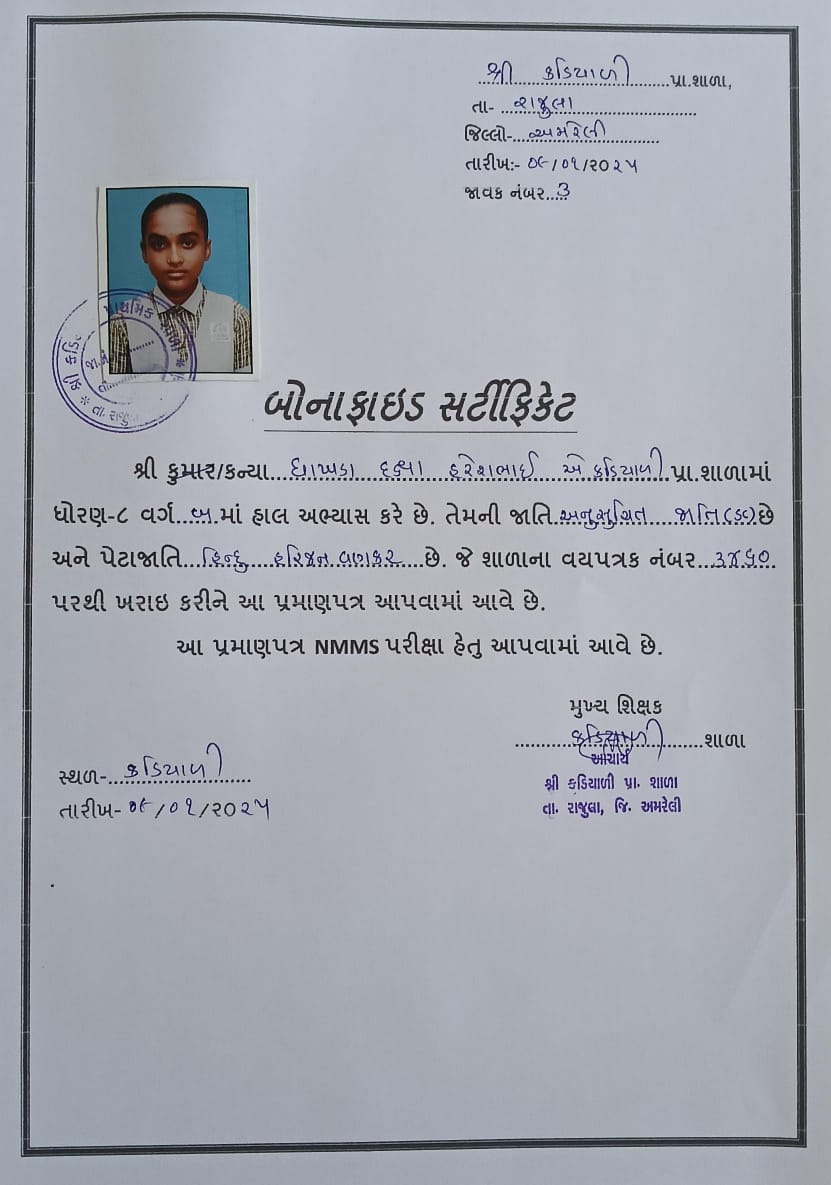 શ્રી કડિયાળી પ્રા.શાળા,
તા- રાજુલા
જિલ્લો- અમરેલી
તારીખ:- ૦૯/૦૧/૨૦૨૫
જાવક નંબર...3
પ્રાથમિક શાળા
તા. રાજુલા
બોનાફાઇડ સર્ટીફિકેટ
શ્રી કુમાર/કન્યા ધાખડા દક્ષા હરેશભાઈ એ કડિયાળી પ્રા.શાળામાં
ધોરણ-૮ વર્ગ બ માં હાલ અભ્યાસ કરે છે. તેમની જાતિ અનુસુચિત જાતિ છે
અને પેટાજાતિ હિન્દુ હરિજન વણકર છે. જે શાળાના વયપત્રક નંબર ૩૪૬૦
પરથી ખરાઇ કરીને આ પ્રમાણપત્ર આપવામાં આવે છે.
આ પ્રમાણપત્ર NMMS પરીક્ષા હેતુ આપવામાં આવે છે.
મુખ્ય શિક્ષક
કડિયાળી શાળા
આચાર્ય
શ્રી કડિયાળી પ્રા. શાળા
તા. રાજુલા, જિ. અમરેલી
સ્થળ- કડિયાળી
તારીખ- ૦૯/૦૧/૨૦૨૫